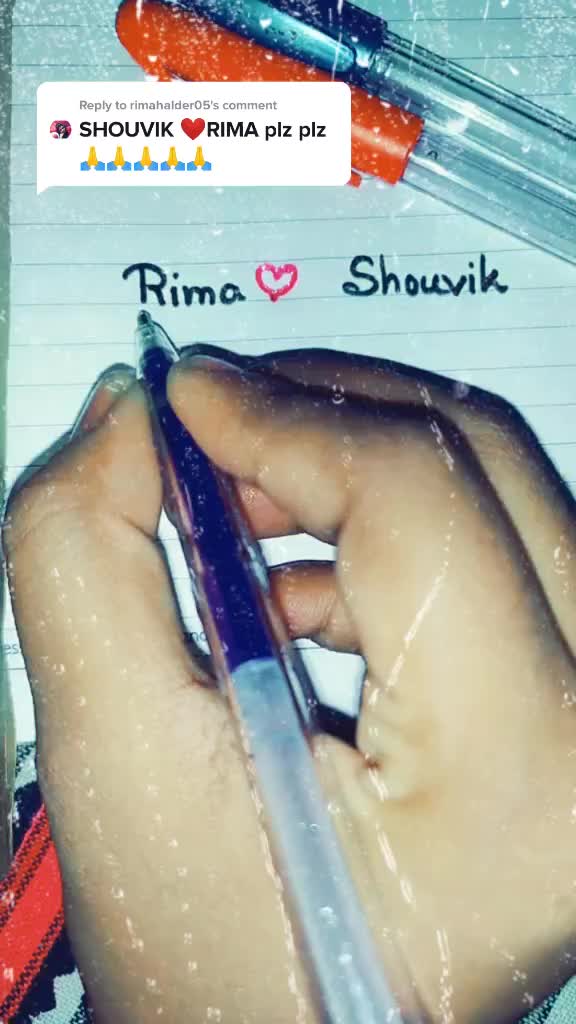 Reply to rimahalder05's comment
SHOUVIK ❤️RIMA plz plz
🙏🙏🙏🙏🙏
Rima Shouvik